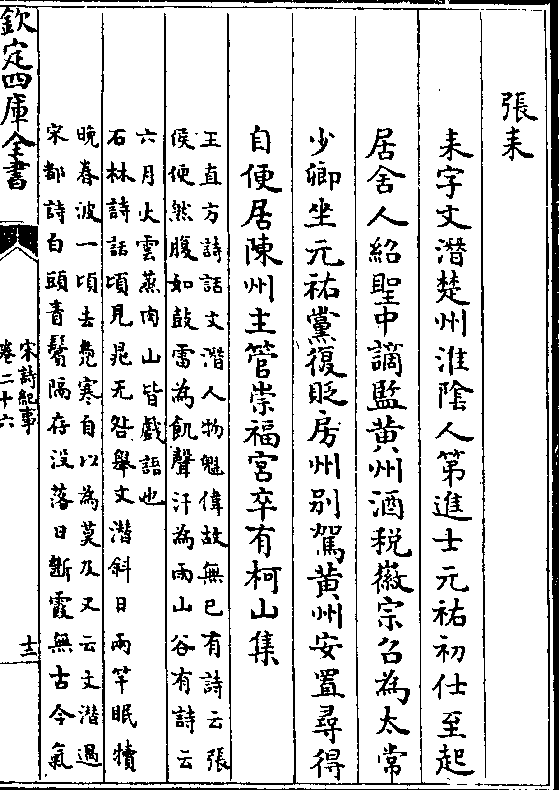 張耒
耒字文潛楚州淮隂人第進士元祐初仕至起
居舍人紹聖中謫監黄州酒税徽宗召為太常
少卿坐元祐黨復貶房州别駕黄州安置尋得
自便居陳州主管崇福宮卒有柯山集
王直方詩話文潛人物魁偉故無已有詩云張
侯便然腹如鼓雷為飢聲汗為雨山谷有詩云
六月火雲蒸肉山皆戲語也
石林詩話頃見晁无咎舉文潛斜日兩竿眠犢
晚春波一頃去鳬寒自以為莫及又云文潛過
宋都詩白頭青鬢隔存没落日斷霞無古今氣
欽定四庫全書
宋詩紀事
卷二十六
十三